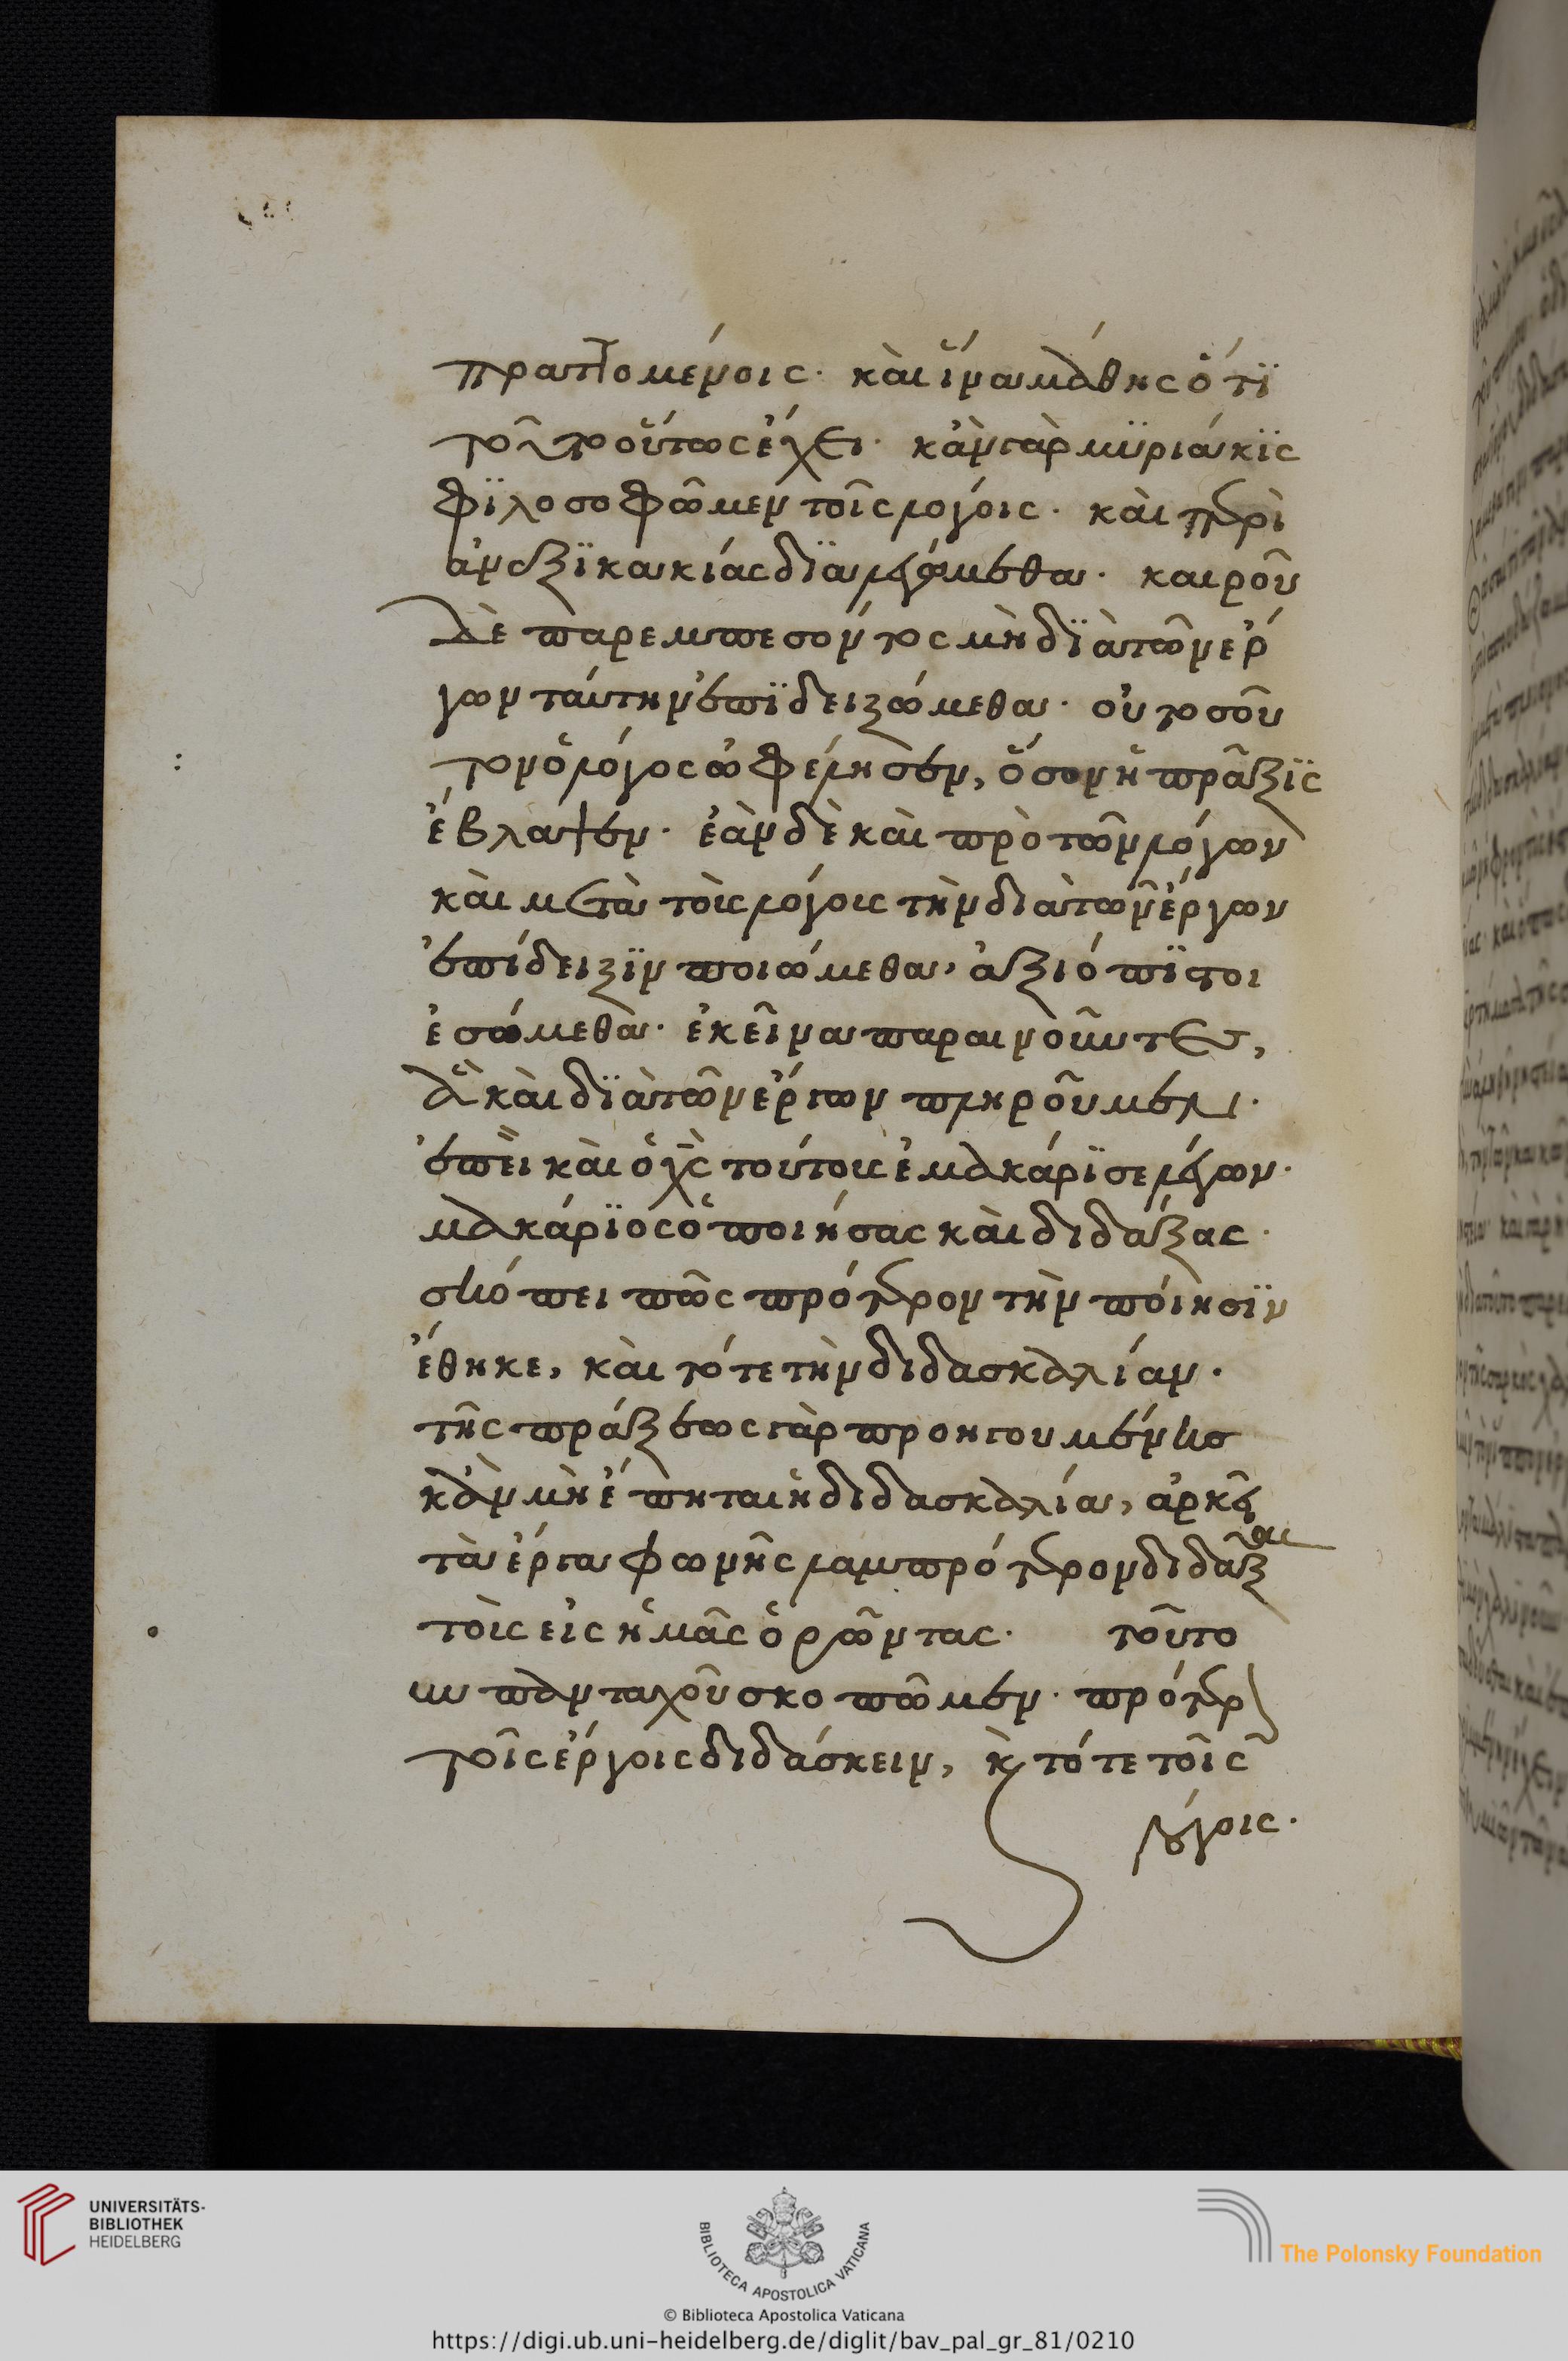 πραττομένοις· καὶ ἵνα μάθης ὅτϊ
τοῦτο οὕτως ἔχει· κἂν γὰρ μϋριάκϊς
φϊλοσοφῶμεν τοῖς λόγοις· καὶ περὶ
ἀνεξϊκακίας δϊαλεγώμεθα· καιροῦ
δὲ παρεμπεσόντος μὴ δϊὰ τῶν ἔρ
γων ταύτην ἐπϊδειξώμεθα· οὐ τοσοῦ
τον ὁ λόγος ὠφέλησεν, ὅσον ἡ πρᾶξϊς
ἔβλαψεν· ἐὰν δὲ καὶ πρὸ τῶν λόγων
καὶ μετὰ τοὺς λόγους τὴν διὰ τῶν ἔργων
ἐπίδειξϊν ποιώμεθα, ἀξιόπϊστοι
ἐσώμεθα· ἐκεῖνα παραινοῦντες,
ἃ καὶ δϊὰ τῶν ἔργων πληροῦμεν·
ἐπεὶ καὶ ὁ χς τούτους ἐμακάρϊσε λέγων·
μακάρϊος ὁ ποιήσας καὶ διδάξας·
σκόπει πῶς πρότερον τὴν ποίησϊν
ἔθηκε, καὶ τότε τὴν διδασκαλίαν·
τῆς πράξεως γὰρ προηγουμένης
κἂν μὴ ἕπηται ἡ διδασκαλία, ἀρκεῖ
τὰ ἔργα φωνῆς λαμπρότερον διδάξαι
τοὺς εἰς ἡμᾶς ὁρῶντας· τοῦτο
οὖν πανταχοῦ σκοπῶμεν· πρότερ
τοῖς ἔργοις διδάσκειν, κ τότε τοῖς
λόγοις·
UNIVERSITÄTS-
BIBLIOTHEK
HEIDELBERG
BIBLIOTECA APOSTOLICA VATICANA
The Polonsky Foundation
© Biblioteca Apostolica Vaticana
https://digi.ub.uni-heidelberg.de/diglit/bav_pal_gr_81/0210